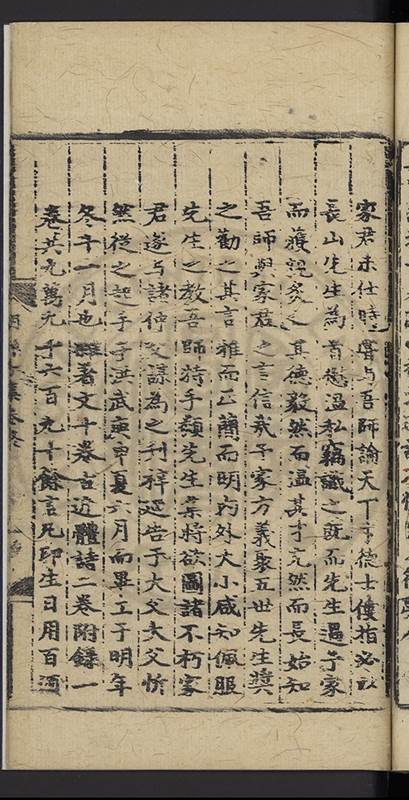 家君未仕時嘗与吾師論天丁有德士僂指必以
長山先生為首慍溫私竊識之既而先生過予家
而獲親炙之其德毅然而溫其才充然而長始知
吾師與家君之言信哉予家方義聚五世先生獎
之勸之其言雅而正簡而明內外大小咸知佩服
先生之教吾師持手類先生藁將欲圖諸不朽家
君遂与諸伯父謀為之刊梓延告于大父大父忻
然從之起手于洪武庚申夏六月而畢工于明年
冬十一月也雜著文十卷古近體詩二卷附錄一
卷共九萬九千六百九十餘言凡印生日用百酒